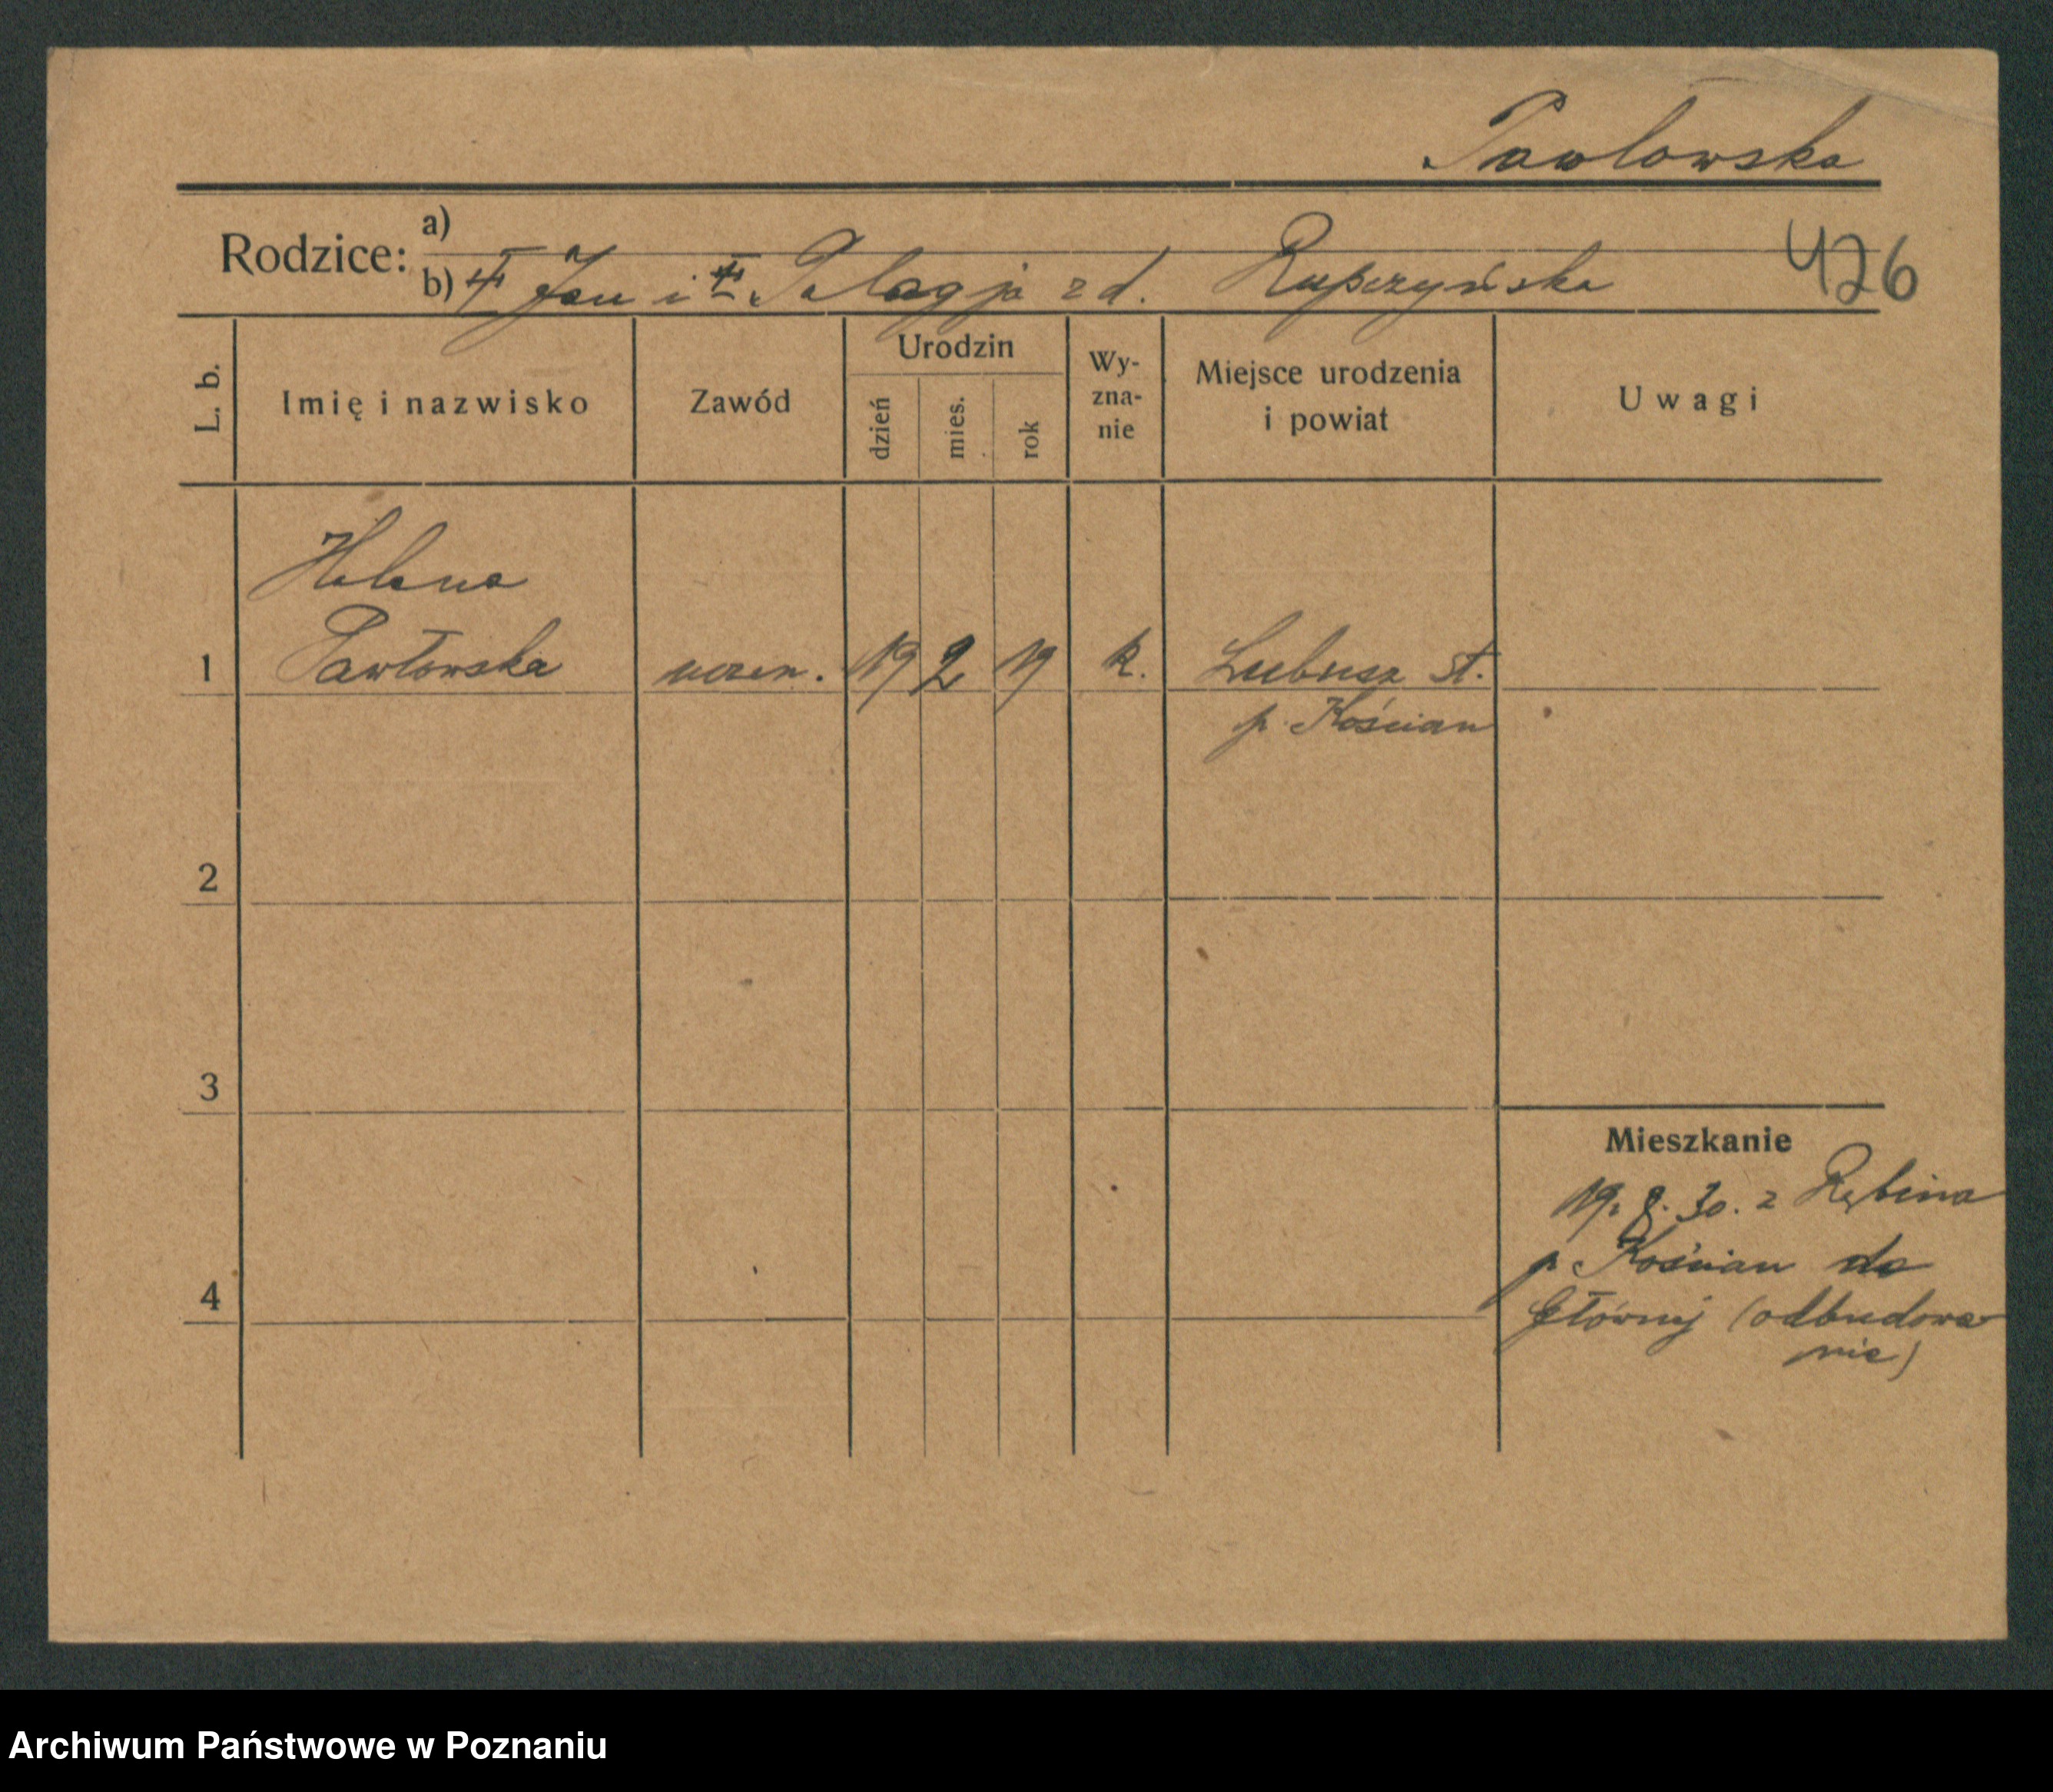 Pawlowska
Rodzice: a)
b) Jan i Pelagja z d. Rupczyńska 426
L. b. Imię i nazwisko Zawód Urodzin dzień mies. rok Wy-zna-nie Miejsce urodzenia i powiat Uwagi
Helena
1 Pawłowska uczen. 19 2 19 k. Lubusz st.
p. Kościan
2
3
Mieszkanie
19. 8. 30. z Rąbina
p. Kościan do
4 Głównej (odbudowa-
nie)
Archiwum Państwowe w Poznaniu